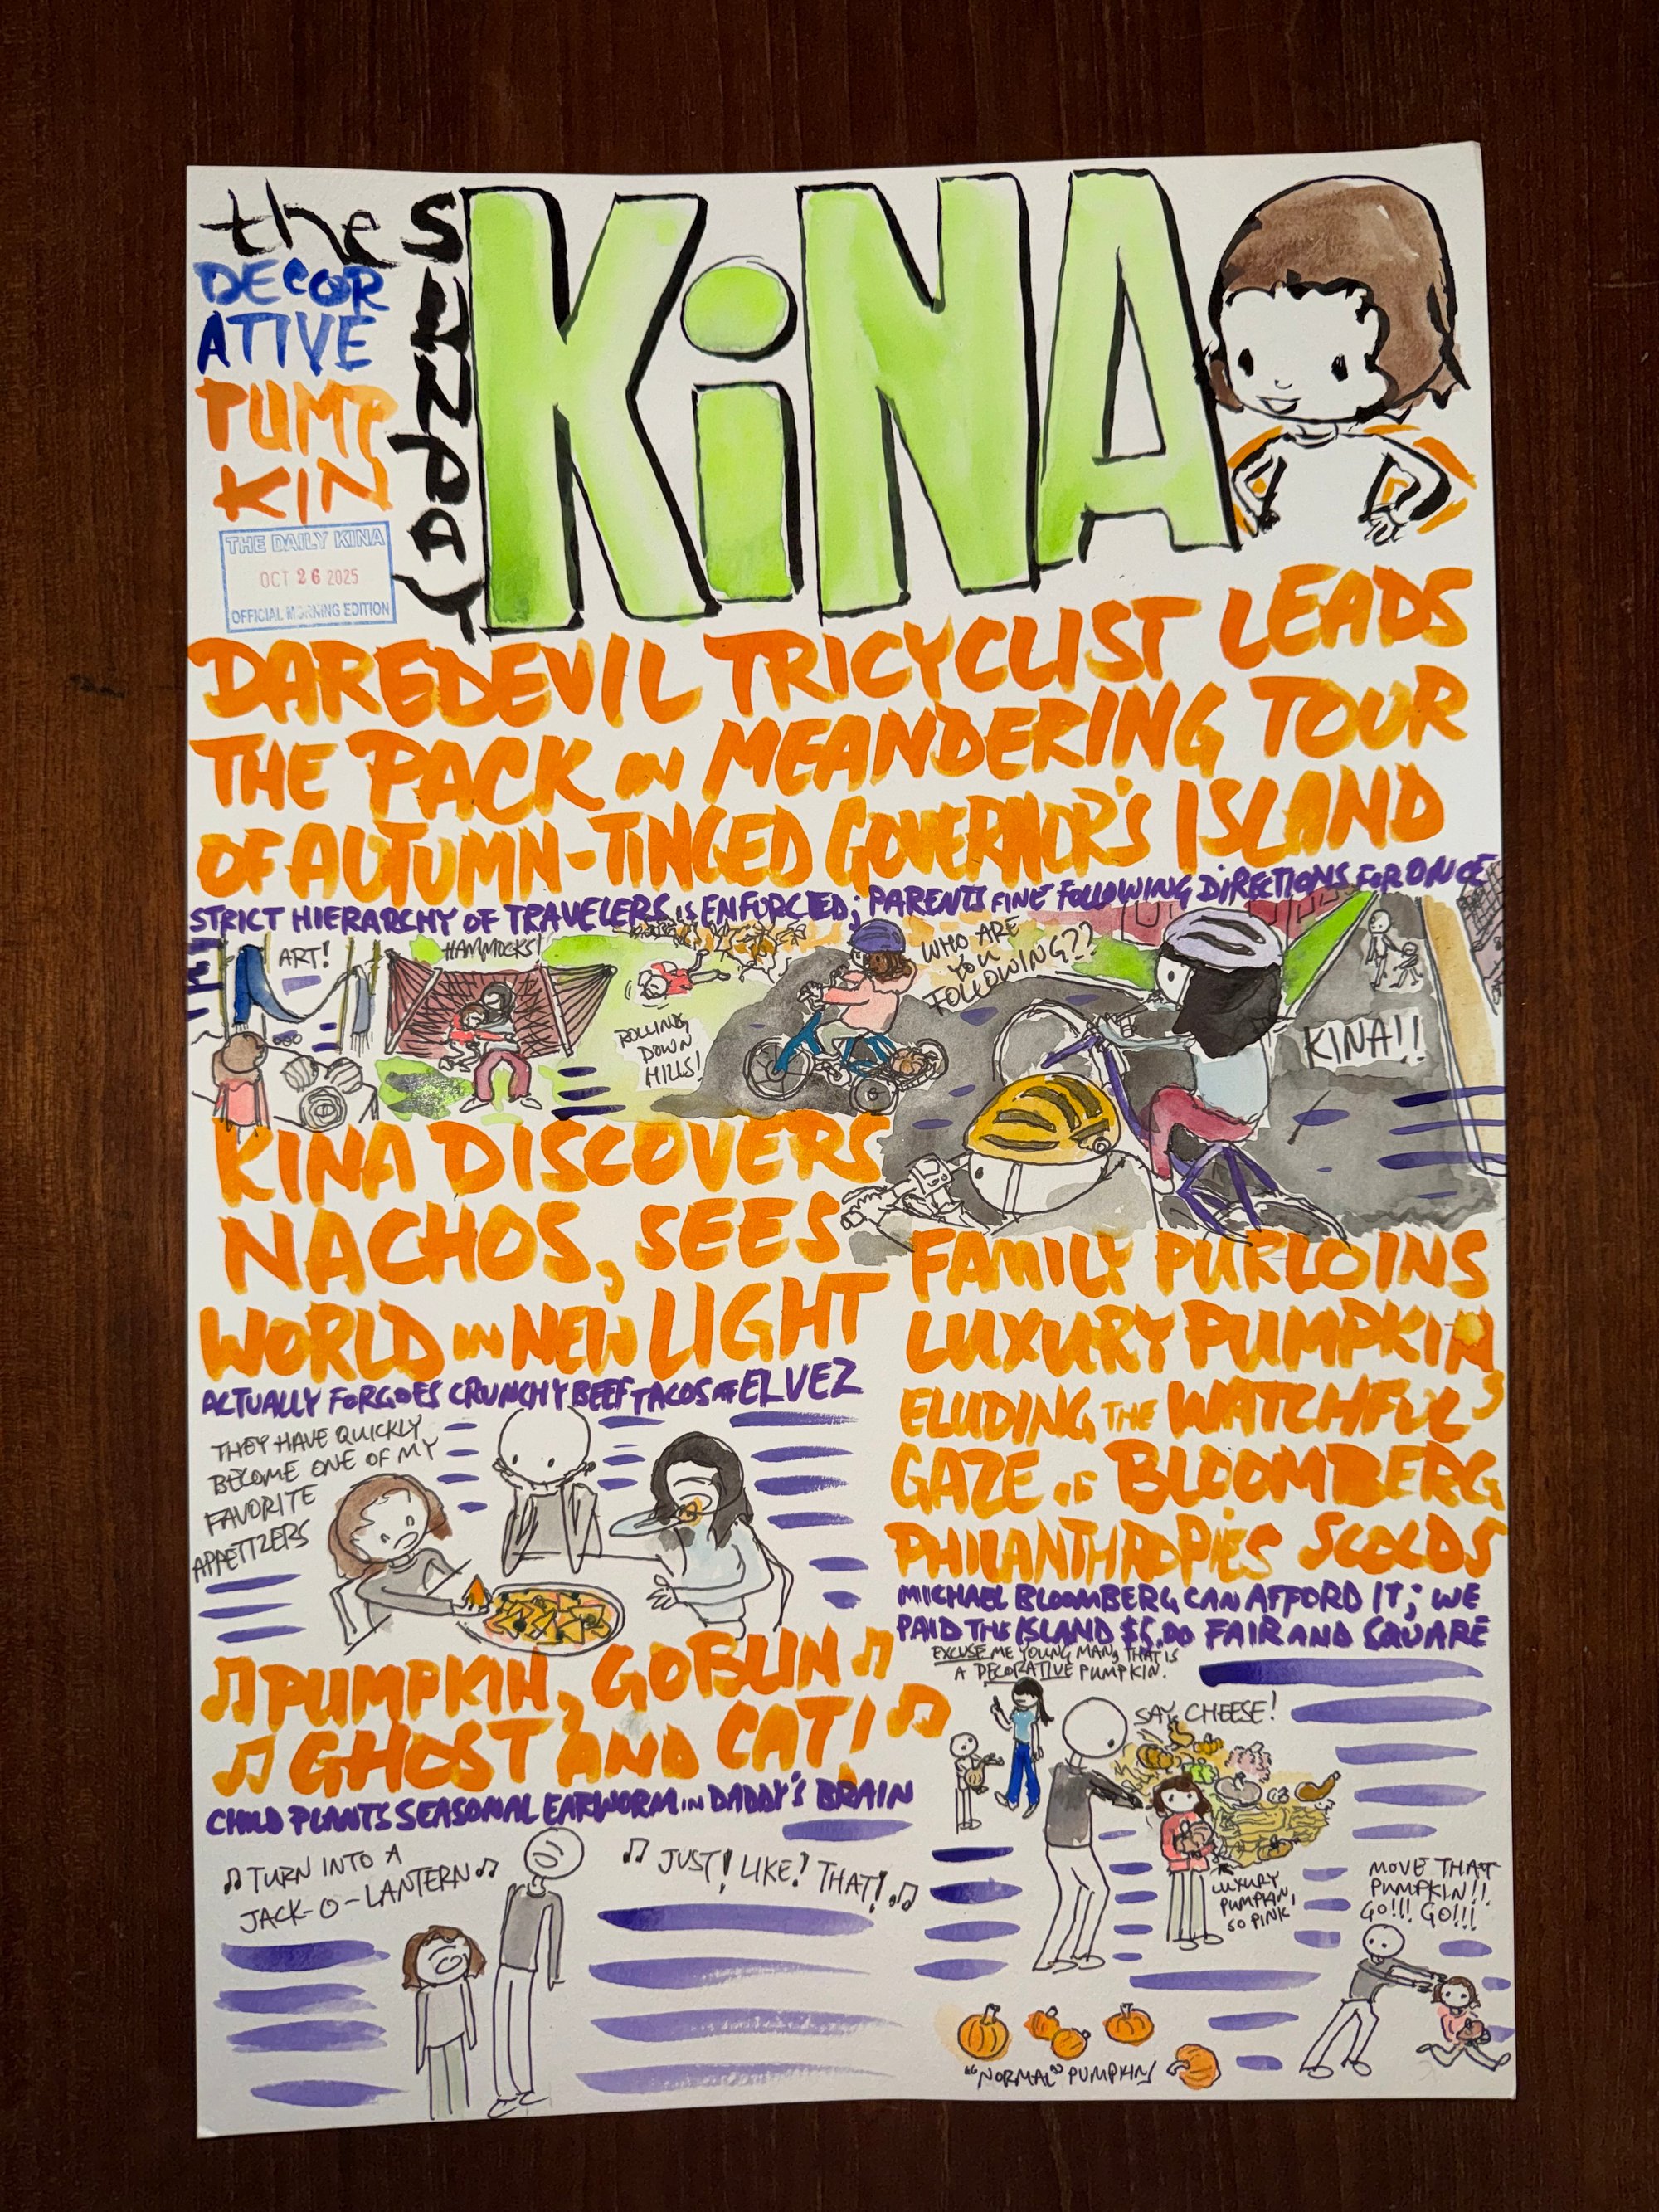 the
SUNDAY
KiNA
DECOR
ATIVE
PUMP
KIN
THE DAILY KINA
OCT 26 2025
OFFICIAL MORNING EDITION
DAREDEVIL TRICYCLIST LEADS
THE PACK IN MEANDERING TOUR
OF AUTUMN-TINGED GOVERNOR'S ISLAND
STRICT HIERARCHY OF TRAVELERS IS ENFORCED; PARENTS FINE FOLLOWING DIRECTIONS FOR ONCE
ART!
HAMMOCKS!
ROLLING
DOWN
HILLS!
WHO ARE
YOU
FOLLOWING??
KINA!!
KINA DISCOVERS
NACHOS, SEES
WORLD IN NEW LIGHT
ACTUALLY FORGOES CRUNCHY BEEF TACOS AT EL VEZ
THEY HAVE QUICKLY
BECOME ONE OF MY
FAVORITE
APPETIZERS
♫ PUMPKIN, GOBLIN ♫
♫ GHOST AND CAT! ♫
CHILD PLANTS SEASONAL EARWORM IN DADDY'S BRAIN
♫ TURN INTO A
JACK-O-LANTERN ♫
♫ JUST! LIKE! THAT! ♫
FAMILY PURLOINS
LUXURY PUMPKIN,
ELUDING THE WATCHFUL
GAZE OF BLOOMBERG
PHILANTHROPIES SCOLDS
MICHAEL BLOOMBERG CAN AFFORD IT; WE
PAID THE ISLAND $5.00 FAIR AND SQUARE
EXCUSE ME YOUNG MAN, THAT IS
A DECORATIVE PUMPKIN.
SAY CHEESE!
LUXURY
PUMPKIN,
SO PINK
MOVE THAT
PUMPKIN!!
GO!!! GO!!!
"NORMAL" PUMPKINS